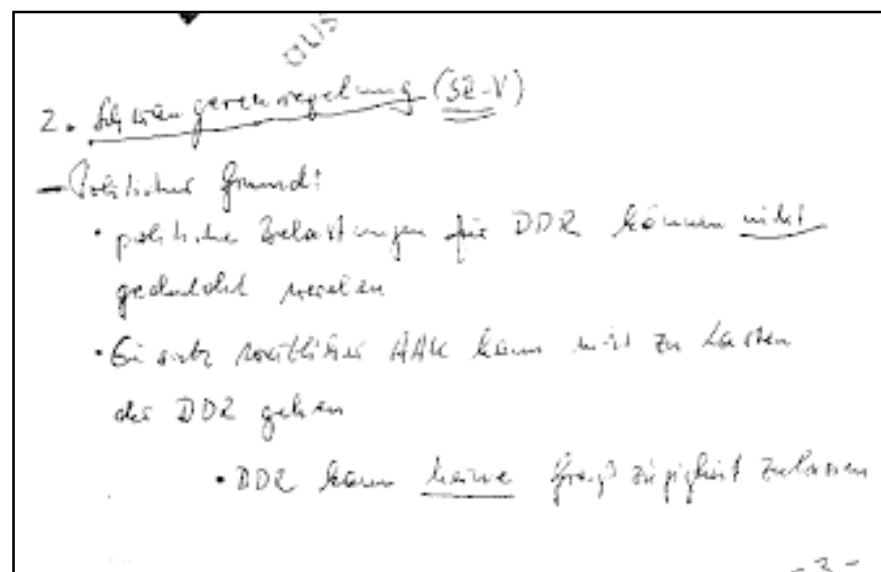 2. Schwangerenregelung (SR-V)
- Politischer Grund:
• politische Belastungen für DDR können nicht
geduldet werden
• Einsatz westlicher AAK kann nicht zu Lasten
der DDR gehen
• DDR kann keine zulassen
- 3 -